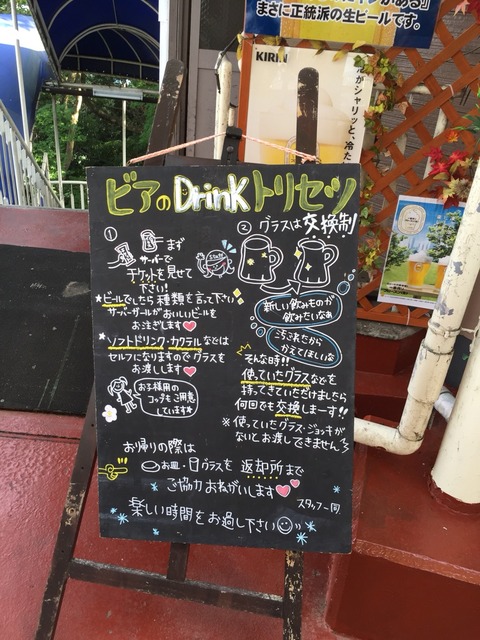 まさに正統派の生ビールです。
KIRIN
がシャリッと、冷た
ビアのDrinkトリセツ
①
まず
サーバーで
チケットを見せて
下さい!
*ビールでしたら種類を言って下さい
サーバーガールがおいしいビールを
お注ぎします
*ソフトドリンク・カクテルなどは
セルフになりますのでグラスを
お渡しします
お子様用の
コップもご用意
しています*
② グラスは交換制
新しい飲みものが
飲みたいなぁ
汚これたから
かえてほしいな
そんな時!!
使っていたグラスなどを
持ってきていただけましたら
何回でも交換しまーす!!
※使っていたグラス・ジョッキが
ないとお渡しできません
お帰りの際は
お皿・グラスを返却所まで
ご協力おねがいします
スタッフ一同
楽しい時間をお過し下さい